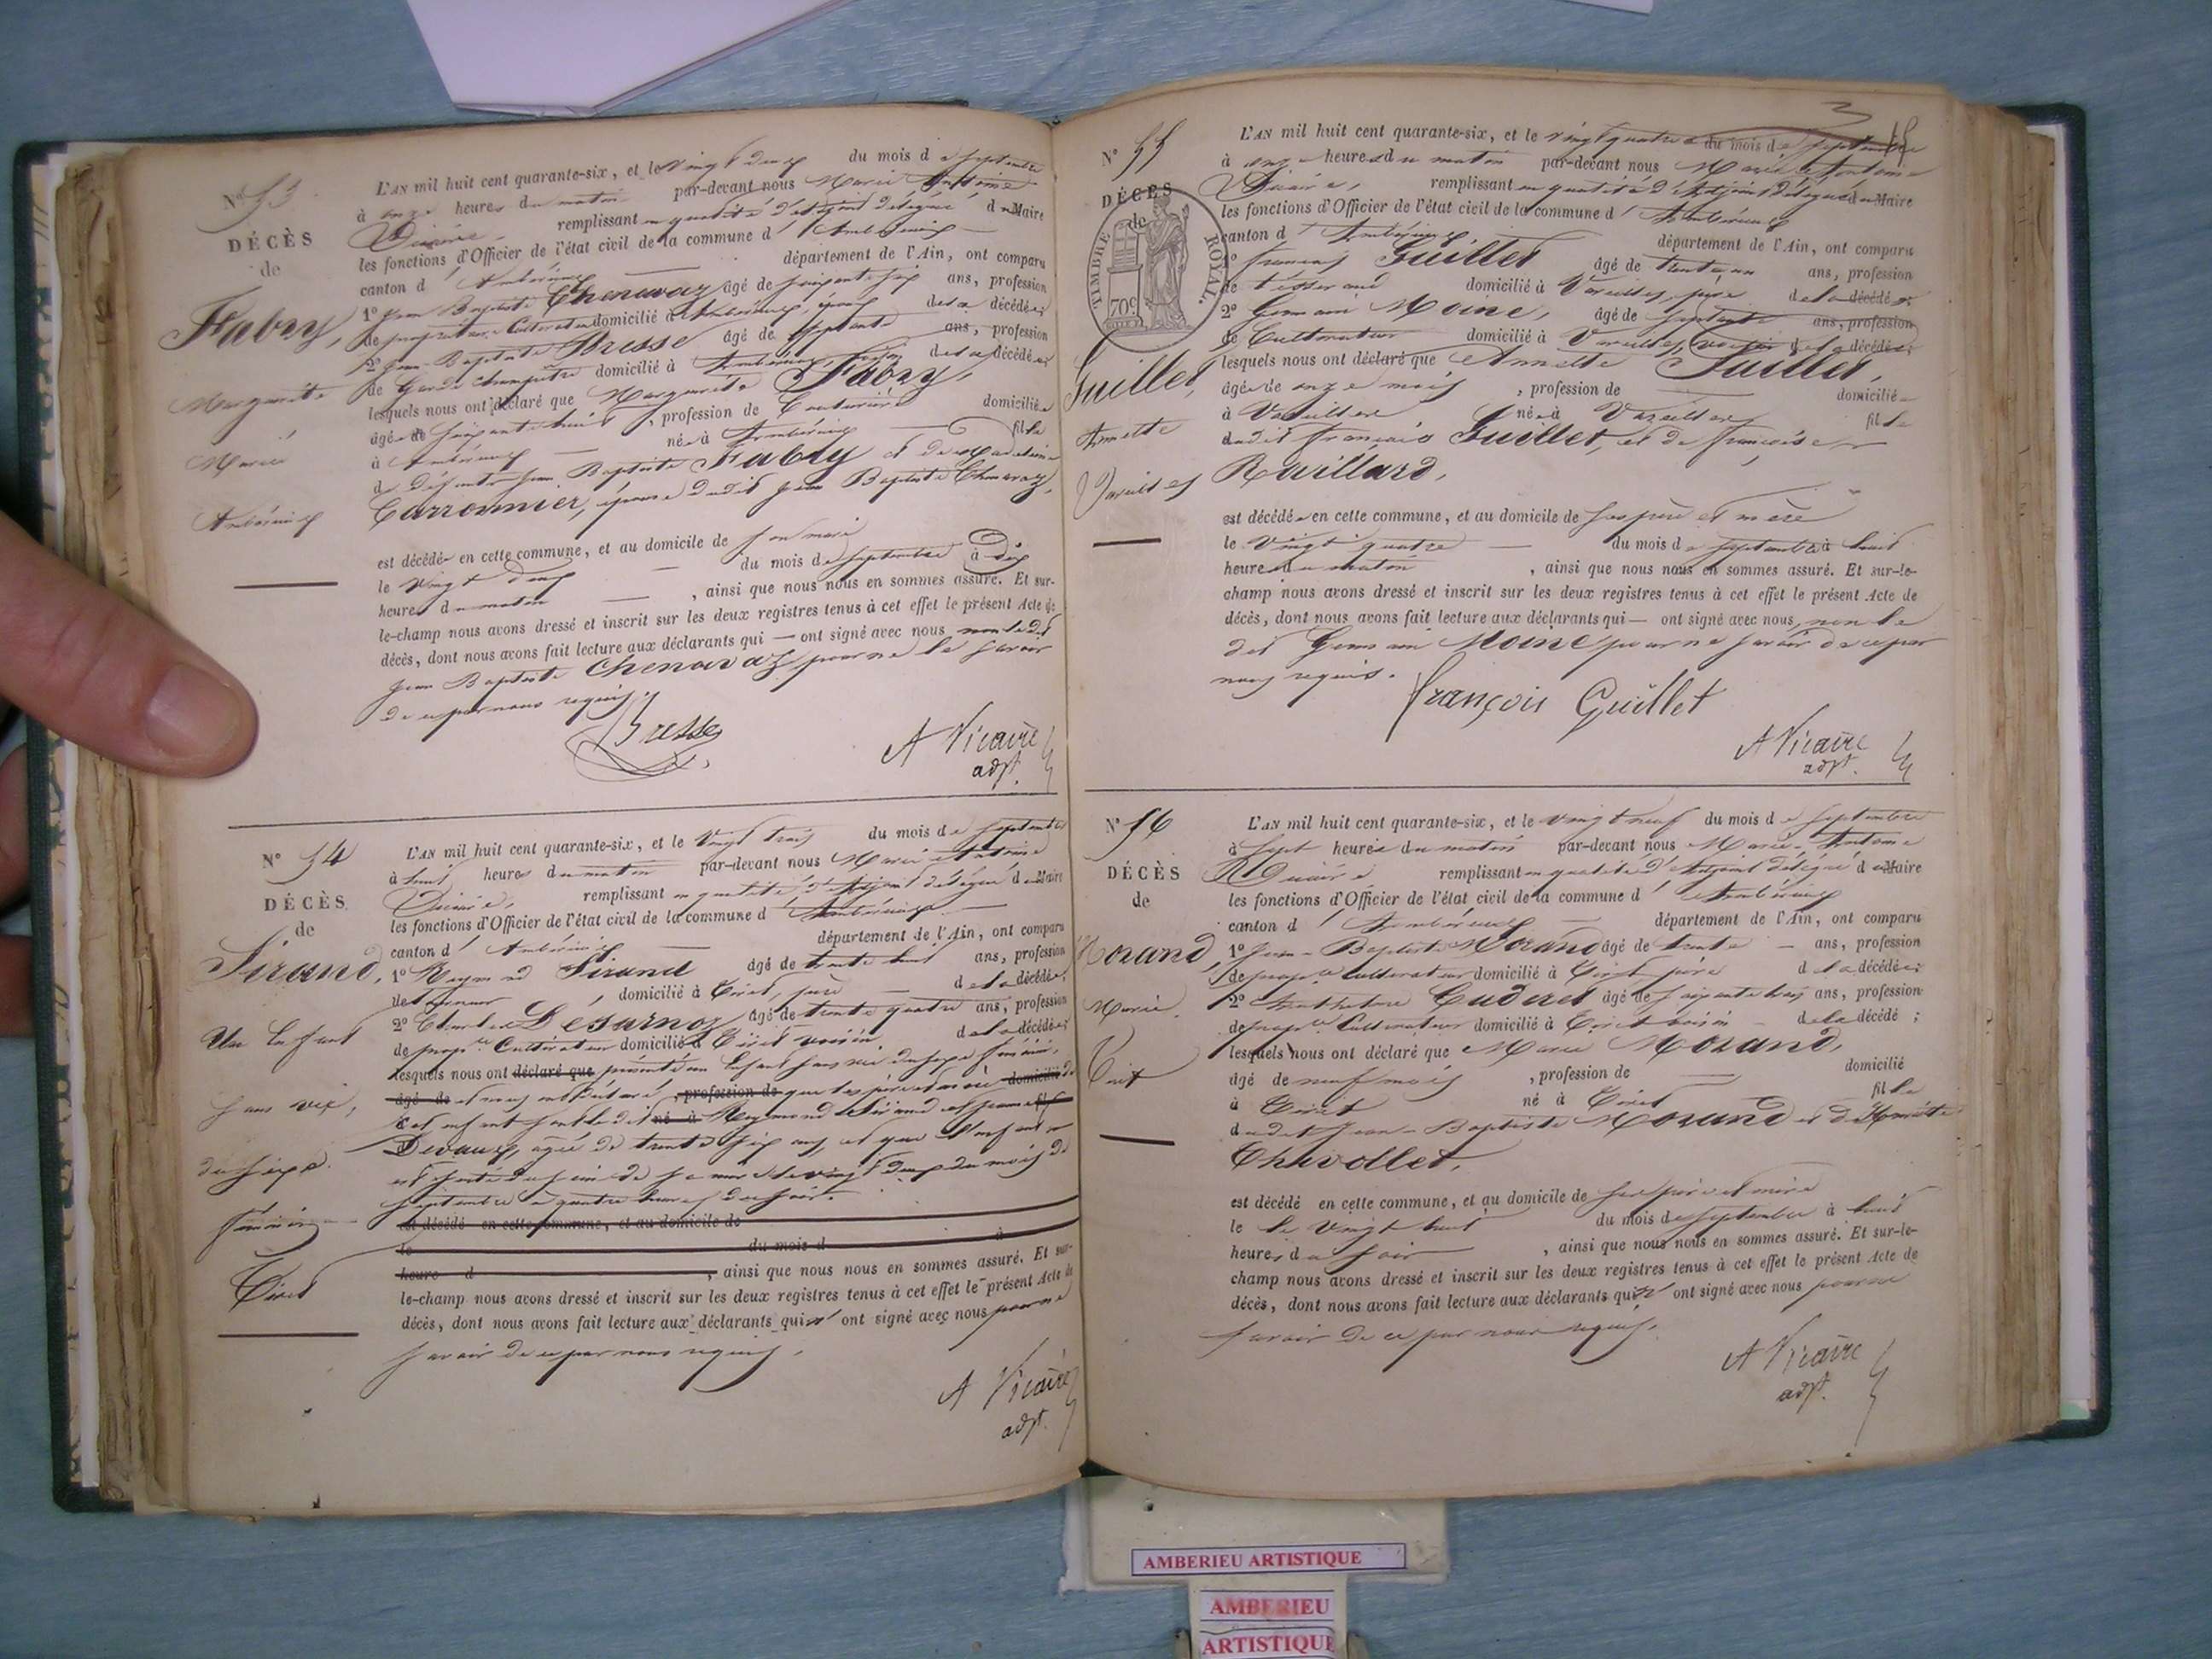 N° 53
DÉCÈS
de
Fabry,
Marguerite
Mariée
Ambérieux
L'AN mil huit cent quarante-six, et le vingt deux du mois de septembre
à onze heures du matin par-devant nous Marie Antoine
Vicaire remplissant en qualité d'adjoint délégué du Maire
les fonctions d'Officier de l'état civil de la commune d'Ambérieux
canton d'Ambérieux département de l'Ain, ont comparu
1° Jean Baptiste Chenavaz âgé de soixante six ans, profession
de propriétaire Cultivateur domicilié à Ambérieux, époux de la décédée;
2° Jean-Baptiste Bresse âgé de septante ans, profession
de Garde champêtre domicilié à Ambérieux, voisin de la décédée;
lesquels nous ont déclaré que Marguerite Fabry,
âgée de soixante huit, profession de Couturière domiciliée
à Ambérieux née à Ambérieux fille
de défunts Jean Baptiste Fabry et de Madeleine
Carronnier, épouse dudit Jean Baptiste Chenavaz,
est décédée en cette commune, et au domicile de son mari
le vingt deux du mois de septembre à dix
heures du matin, ainsi que nous nous en sommes assuré. Et sur-
le-champ nous avons dressé et inscrit sur les deux registres tenus à cet effet le présent Acte de
décès, dont nous avons fait lecture aux déclarants qui — ont signé avec nous, non ledit
Jean Baptiste Chenavaz pour ne le savoir
de ce par nous requis.
Bresse
A Vicaire
adjt.
N° 54
DÉCÈS
de
Sirand,
Un Enfant
sans vie,
du sexe
féminin
Tiret
L'AN mil huit cent quarante-six, et le vingt trois du mois de septembre
à huit heures du matin par-devant nous Marie Antoine
Vicaire, remplissant en qualité d'Adjoint délégué du Maire
les fonctions d'Officier de l'état civil de la commune d'Ambérieux
canton d'Ambérieux département de l'Ain, ont comparu
1° Reymond Sirand âgé de trente huit ans, profession
de tanneur domicilié à Tiret, père de la décédée;
2° Charles Désarnoz âgé de trente quatre ans, profession
de propre Cultivateur domicilié à Tiret voisin de la décédée;
lesquels nous ont déclaré que présenté un Enfant sans vie du sexe féminin,
âgé de et nous ont déclaré profession de que les père et mère domicilié de
cet enfant sont ledit né à Reymond Sirand et Jeanne fil
Devaux, agée de trente six ans, et que l'enfant
est sorti du sein de sa mère le vingt deux du mois de
septembre à quatre heures du soir.
est décédé en cette commune, et au domicile de
le du mois d à
heure d, ainsi que nous nous en sommes assuré. Et sur-
le-champ nous avons dressé et inscrit sur les deux registres tenus à cet effet le présent Acte de
décès, dont nous avons fait lecture aux déclarants qui n'ont signé avec nous pour ne
savoir de ce par nous requis.
A Vicaire
adjt.
N° 55
DÉCÈS
de
TIMBRE ROYAL.
70c
Guillet,
Annette
Vareilles
L'AN mil huit cent quarante-six, et le vingt quatre du mois de septembre
à onze heures du matin par-devant nous Marie Antoine
Vicaire, remplissant en qualité d'Adjoint délégué du Maire
les fonctions d'Officier de l'état civil de la commune d'Ambérieux
canton d'Ambérieux département de l'Ain, ont comparu
1° François Guillet âgé de trente un ans, profession
de tisserand domicilié à Vareilles, père de la décédée;
2° Germain Moine, âgé de septante ans, profession
de Cultivateur domicilié à Vareilles, voisin de la décédée;
lesquels nous ont déclaré que Annette Guillet,
âgée de onze mois, profession de domiciliée
à Vareilles née à Vareilles fille
dudit François Guillet, et de Françoise
Ravillard,
est décédée en cette commune, et au domicile de ses père et mère
le vingt quatre du mois de septembre à huit
heures du matin, ainsi que nous nous en sommes assuré. Et sur-le-
champ nous avons dressé et inscrit sur les deux registres tenus à cet effet le présent Acte de
décès, dont nous avons fait lecture aux déclarants qui — ont signé avec nous, non le
dit Germain Moine pour ne savoir de ce par
nous requis.
François Guillet
A Vicaire
adjt.
N° 56
DÉCÈS
de
Morand,
Marie
Tiret
L'AN mil huit cent quarante-six, et le vingt neuf du mois de septembre
à sept heures du matin par-devant nous Marie-Antoine
Vicaire remplissant en qualité d'Adjoint délégué du Maire
les fonctions d'Officier de l'état civil de la commune d'Ambérieux
canton d'Ambérieux département de l'Ain, ont comparu
1° Jean-Baptiste Morand âgé de trente ans, profession
de propre Cultivateur domicilié à Tiret père de la décédée;
2° Anthelme Cuderet âgé de soixante trois ans, profession
de propre Cultivateur domicilié à Tiret voisin de la décédé;
lesquels nous ont déclaré que Marie Morand,
âgé de neuf mois, profession de domicilié
à Tiret né à Tiret fille
dudit Jean-Baptiste Morand et de
Chavollet,
est décédé en cette commune, et au domicile de ses père et mère
le le vingt huit du mois de septembre à huit
heures du soir, ainsi que nous nous en sommes assuré. Et sur-le-
champ nous avons dressé et inscrit sur les deux registres tenus à cet effet le présent Acte de
décès, dont nous avons fait lecture aux déclarants qui n'ont signé avec nous pour ne
savoir de ce par nous requis.
A Vicaire
adjt.
AMBERIEU ARTISTIQUE
AMBERIEU
ARTISTIQUE